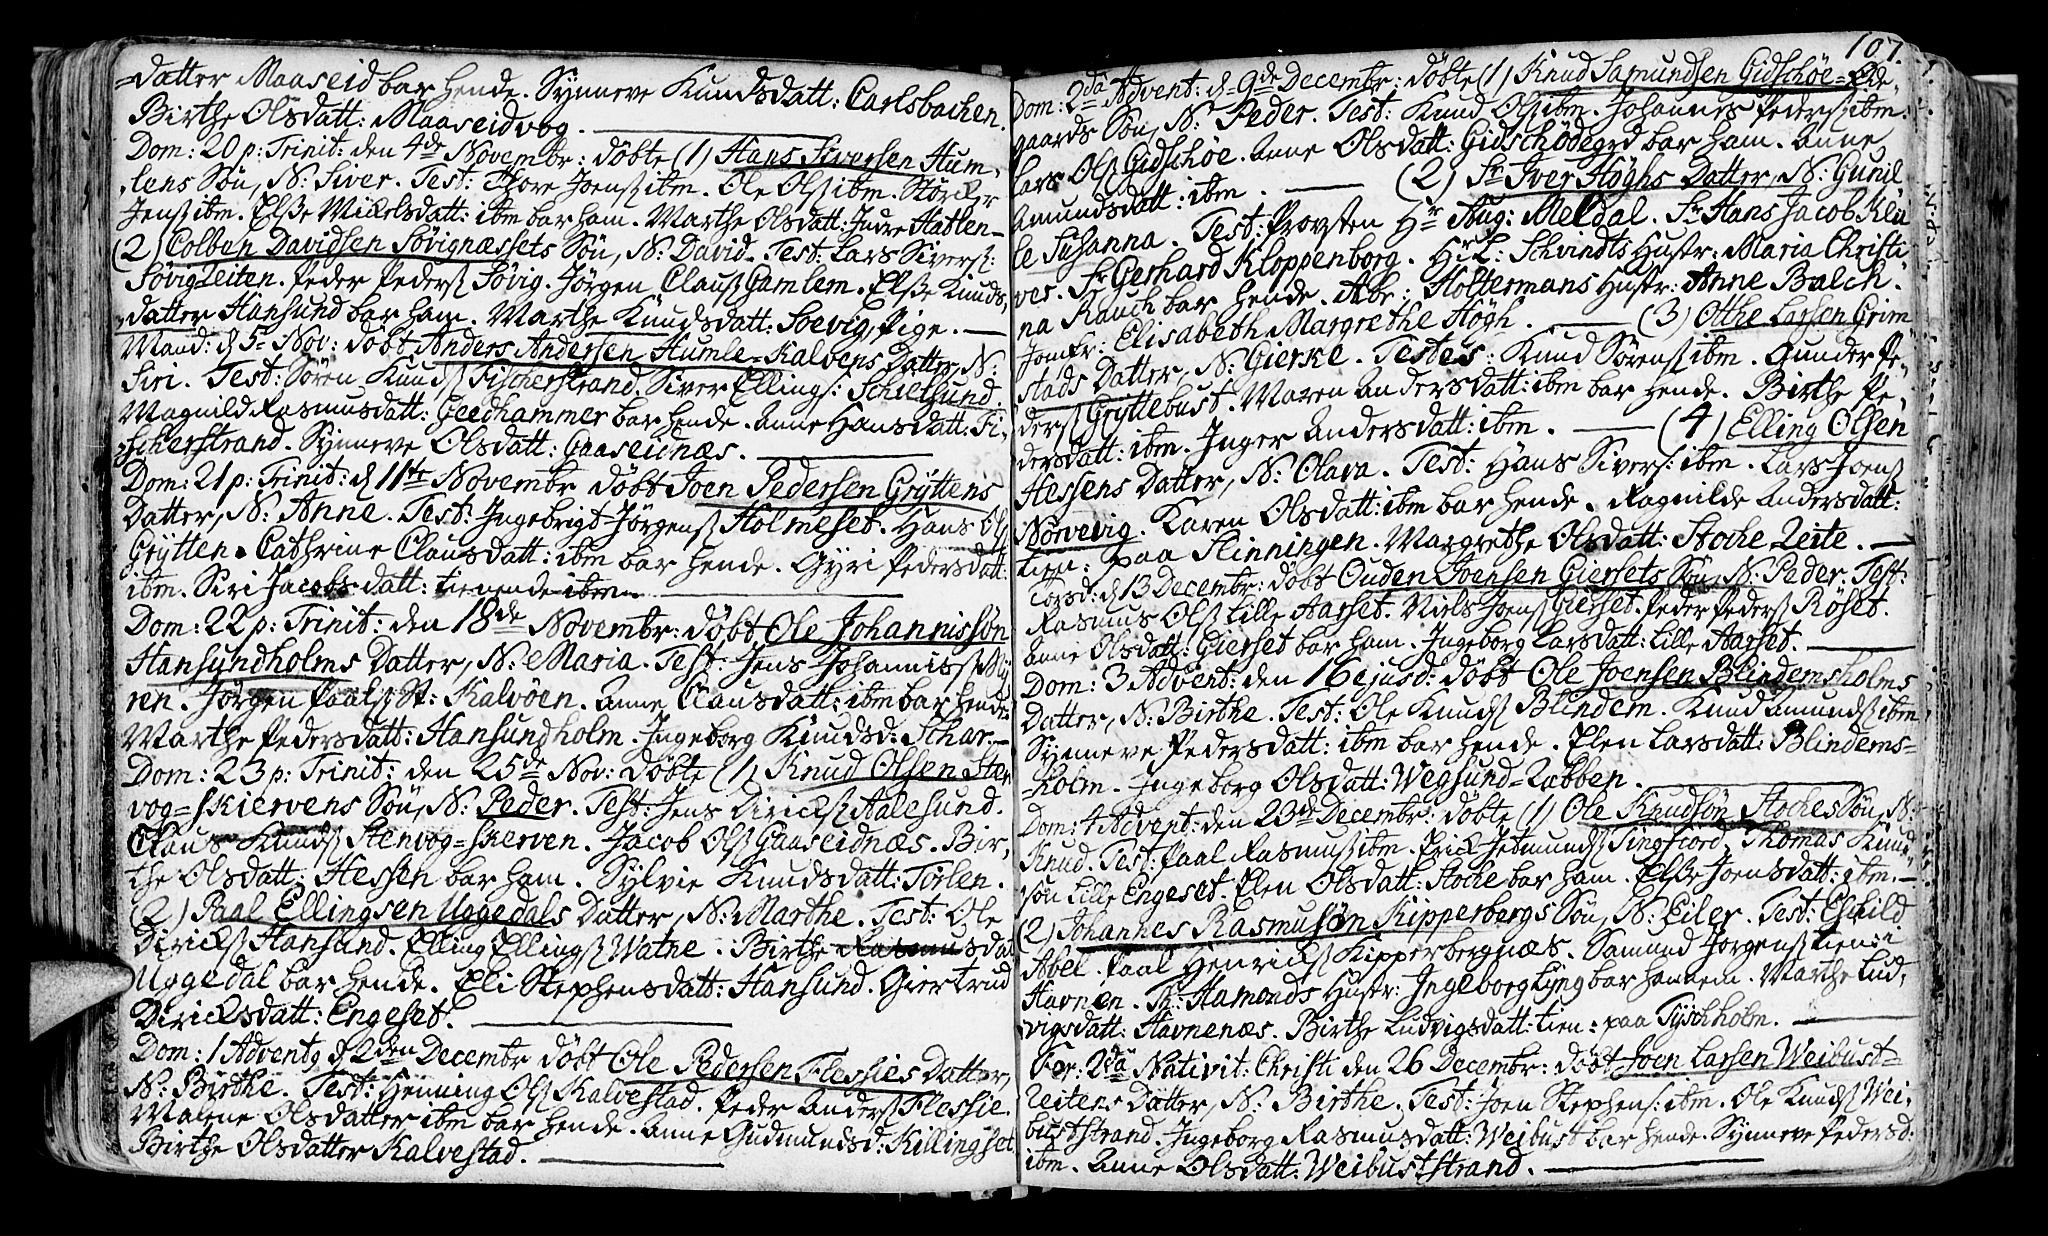 =datter Maaseid bar hende. Synneve Knudsdatt: Carlsbachen.
Birthe Olsdatt: Maaseidvog.
Dom: 20 p: Trinit: den 4de Novembr: döbte (1) Hans Siversen Hum,
lens Sön, N: Siver. Test: Thore Joens ibm. Ole Ols ibm. Störker
Jens ibm. Elsße Mickelsdatt: ibm bar ham. Marthe Olsdatt: Indre Hatlen
(2) Colben Davidsen Sövignæssets Sön, N: David. Test: Lars Sivers:
Sövigzeiten. Peder Peders Søvig. Jörgen Claus Gamlem. Elsße Knuds,
datter Hansund bar ham. Marthe Knudsdatt: Soevig, Pige.
Mand: d 5te Nov: döbt Anders Andersen Humle=Kalvens Datter, N:
Siri. Test: Sören Knuds Fischerstrand. Siver Ellings: Schielsund.
Magnild Rasmusdatt: Geedhammer bar hende. Anne Hansdatt: Fi,
scherstrand. Synneve Olsdatt: Gaaseidnæs.
Dom: 21 p: Trinit: d 11te Novembr döbt Joen Pedersen Gryttens
Datter, N: Anne. Test: Ingebrigt Jörgens Holmeset. Hans Ols
Grytten. Cathrine Clausdatt: ibm bar hende. Gyri Pedersdatt:
ibm. Siri Jacobsdatt: tienende ibm.
Dom: 22 p: Trinit: den 18de Novembr: döbt Ole Johannissön
Hansundholms Datter, N: Maria. Test: Jens Johanniss My
ren. Jörgen Paals St: Kalvöen. Anne Clausdatt: ibm bar hende
Marthe Pedersdatt: Hansundholm. Ingeborg Knudsd: Schar.
Dom: 23 p: Trinit: den 25de Nov: döbte (1) Knud Olsen Sten
vog=skiervens Sön, N: Peder. Test: Jens Diricks Aalesund.
Claus Knuds Stenvog=skerven. Jacob Ols Gaaseidnæs. Bir,
the Olsdatt: Hessen bar ham. Sylvie Knudsdatt: Torlen.
(2) Paal Ellingsen Uggedals Datter, N: Marthe. Test: Ole
Diricks Hansund. Elling Ellings Watne. Birthe Rasmusdat
Uggedal bar hende. Eli Stephensdatt: Hansund. Giertrud
Diricksdatt: Engeset.
Dom: 1 Advent9 d 2den Decembr döbt Ole Pedersen Flessies Datter,
N: Birthe. Test: Henning Ols Kalvestad. Peder Anders Flessie.
Malene Olsdatter ibm bar hende. Anne Gudmundsd: Killingset
Birthe Olsdatter Kalvestad.
107.
Dom: 2da Advent: d 9de Decembr: döbte (1) Knud Samundsen Gidschöe=Öde
gaards Sön, N: Peder. Test: Knud Ols ibm. Johannes Peders ibm:
Lars Ols Gidschöe. Anne Olsdatt: Gidschödegrd bar ham. Anne
Amundsdatt: ibm. (2) Sr Iver Höghs Datter, N: Gunil
le Susanna. Test: Provsten Hr Aug: Meldal. Sr Hans Jacob Klü
ver. Sr Gerhard Kloppenborg. Hr L: Schvindts Hustr: Maria Christi
na Rauch bar hende. Abr: Holtermans Hustr: Anne Balch.
Jomfr: Elisabeth Margrethe Högh. (3) Otthe Larsen Grim
stads Datter, N: Gierke. Testes: Knud Sörens ibm. Gunder Pe,
ders Gryttebust. Maren Andersdatt: ibm bar hende. Birthe Pe,
dersdatt: ibm. Inger Andersdatt: ibm. (4) Elling Olsen
Hessens Datter, N: Olava. Test: Hans Sivers: ibm. Lars Joens
Nörvevig. Karen Olsdatt: ibm bar hende. Ragnilde Andersdatt:
tien: paa Slinningen. Margrethe Olsdatt: Stocke Zeite.
Torsd: d 13 Decembr: döbt Ouden Joensen Giersets Sön, N: Peder. Test:
Rasmus Ols Lille Aarset. Niels Joens Gierset. Peder Peders Röset.
Anne Olsdatt: Gierset bar ham. Ingeborg Larsdatt: Lille Aarset.
Dom: 3 Advent: den 16 ejusd: döbt Ole Joensen Blindemsholms
Datter, N: Birthe. Test: Ole Knuds Blindem. Knud Amunds ibm.
Synneve Pedersdatt: ibm bar hende. Elen Larsdatt: Blindems=
holm. Ingeborg Olsdatt: Wegsund=Zabben.
Dom: 4 Advent: den 23de Decembr: döbte (1) Ole Knudsön Stoches Sön, N:
Knud. Test: Paal Rasmus ibm. Erick Jetmunds Tingfiord. Thomas Knud
sön Lille Engeset. Elen Olsdatt: Stoche bar ham. Elsße Joensdatt: ibm.
(2) Johannes Rasmusön Kipperbergs Sön, N: Eiler. Test: Eschild
Abel. Paal Henricks Kipperbergnæs. Samund Jörgens tien: i
Havnen. Th: Hamonds Hustr: Ingeborg Lyng bar hannem. Marthe Lud,
vigsdatt: Havnenæs. Birthe Ludvigsdatt: tien: paa Tyschholm.
Fer: 2da Nativit: Christi den 26 Decembr: döbt Joen Larsen Weibust=
Zeitens Datter, N: Birthe. Test: Joen Stephens: ibm. Ole Knuds Wei,
buststrand. Ingeborg Rasmusdatt: Weibust bar hende. Synneve Pedersd:
ibm. Anne Olsdatt: Weibuststrand.